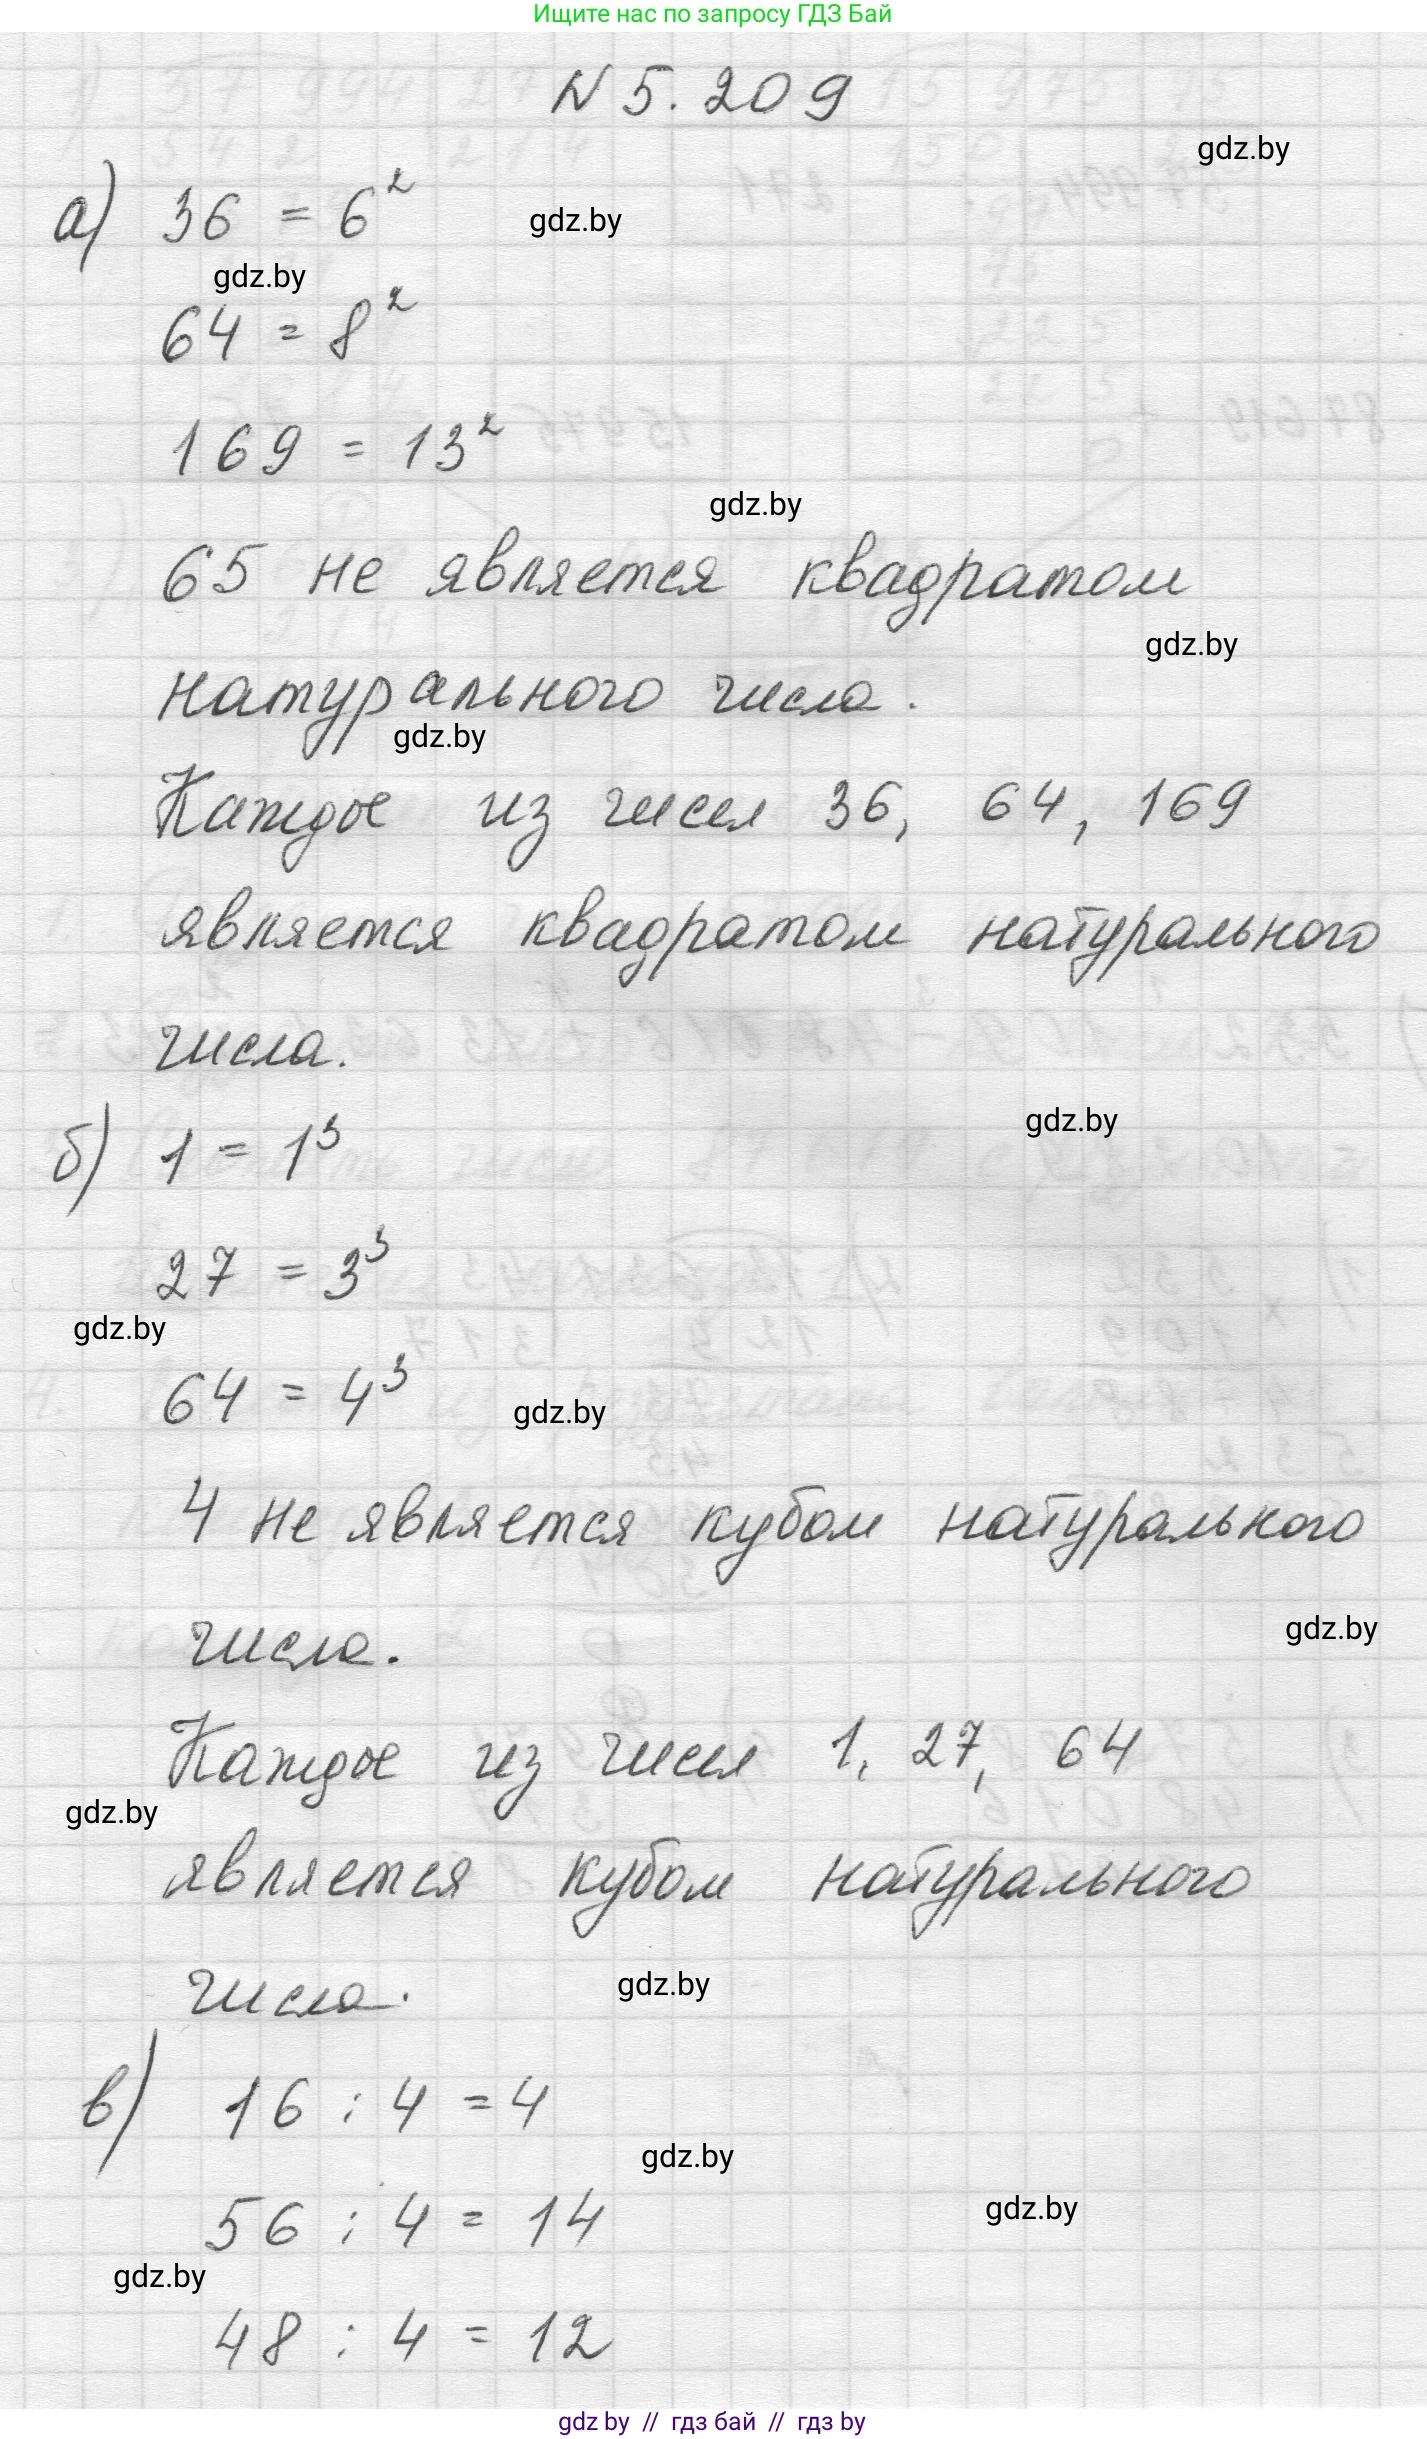 Ищите нас по запросу ГДЗ Бай
N 5.209
gdz.by
а) 36 = 6²
gdz.by
gdz.by
64 = 8²
169 = 13²
gdz.by
65 не является квадратом
gdz.by
натурального числа.
gdz.by
Каждое из чисел 36, 64, 169
является квадратом натурального
числа.
gdz.by
б) 1 = 1³
27 = 3³
gdz.by
64 = 4³
gdz.by
4 не является кубом натурального
gdz.by
числа.
Каждое из чисел 1, 27, 64
gdz.by
является кубом натурального
gdz.by
числа.
в) 16 : 4 = 4
gdz.by
gdz.by
56 : 4 = 14
gdz.by
48 : 4 = 12
gdz by // гдз бай // гдз by